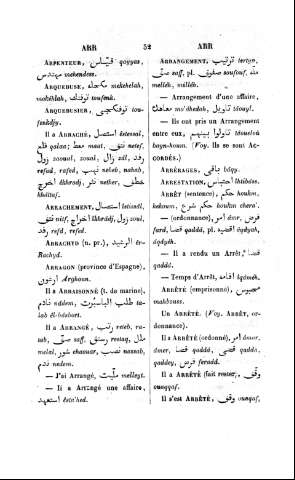 ARR
52
ARR
ARPENTEUR, قيّاس qayyas,
مهندس mehendess.
ARQUEBUSE, مكحلة mekehelah,
mekêhlah, توفنك toufenk.
ARQUEBUSIER, توفنكجى tou-
fenkdjy.
Il a ARRACHÉ, استصل estessal,
قلع qalaa; معط maat, نتف netef,
زول zaoual, zoual, زال zâl, رفد
refed, rafed, نهب neheb, nahab,
اخرج ekhredj, نثر nether, خطف
khéttaf.
ARRACHEMENT, استصال istissâl,
نتف nitf, اخراج ikhrâdj, زول zoul,
رفد refd, rafd.
ARRACHYD (n. pr.), الرشيد êr-
Rachyd.
ARRAGON (province d'Espagne),
ارغون Arghoun.
Il a ARRAISONNÉ (t. de marine),
نادم nâdem, طلب الباسبرت talab
êl-bâsbort.
Il a ARRANGÉ, رتب reteb, ra-
tab, صف saff, رستق restaq, ملل
melal, شور chaouar, نصب nassab,
ندم nedem.
— J'ai Arrangé, ملّيت melleyt.
— Il a Arrangé une affaire,
استعهد ésta'hed.
ARRANGEMENT, ترتيب tertyb,
صف saff, pl. صفوف soufouf, مله
melléh, mélléh.
— Arrangement d'une affaire,
معاهدة mo'âhedah, تاويل tâouyl.
— Ils ont pris un Arrangement
entre eux, تاولوا بينهم tâoualoû
bayn-houm. (Voy. Ils se sont AC-
CORDÉS.)
ARRÉRAGES, باقى bâqy.
ARRESTATION, احتباس ihtibâss.
ARRÊT (sentence), حكم houkm,
hekoum, حكم شرع houkm chera'.
— (ordonnance), امر âmr, فرض
fard, قضا qaddâ, pl. اقضيه âqdyah,
âqdyéh.
— Il a rendu un Arrêt, قضا
qaddâ.
— Temps d'Arrêt, اقامه îqâméh.
ARRÊTÉ (emprisonné), محبوس
mahbouss.
Un ARRÊTÉ. (Voy. ARRÊT, or-
donnance).
Il a ARRÊTÉ (ordonné), امر âmar,
âmer, قضا qaddâ, قضى qadda,
qaddey, فرض feradd.
Il a ARRÊTÉ (fait rester), وقّف
ouaqqaf.
Il s'est ARRÊTÉ, وقف ouaqaf,